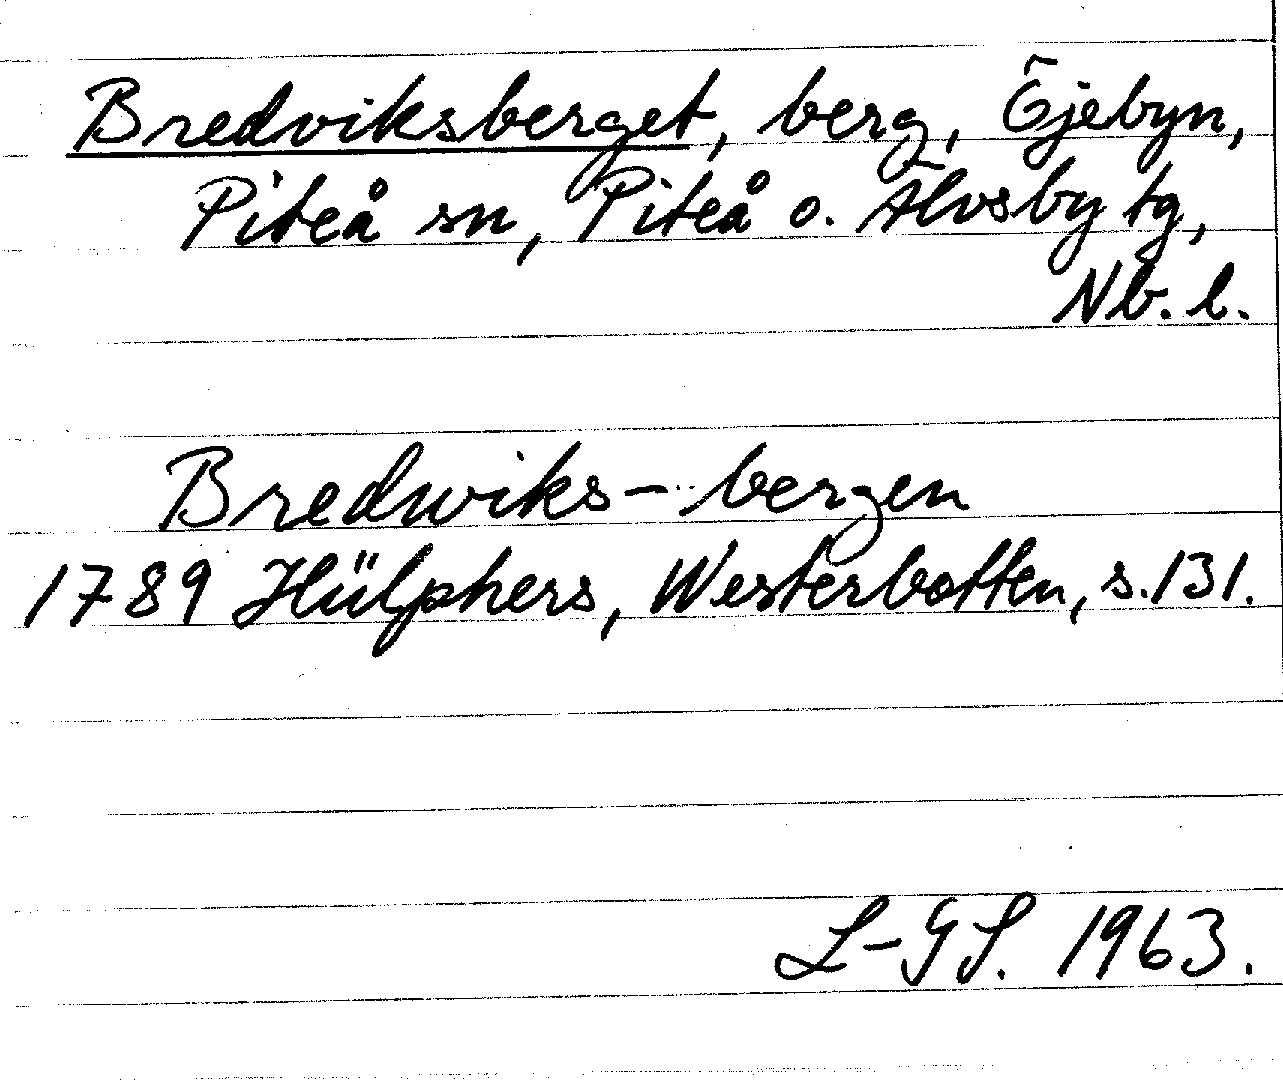 Bredviksberget, berg, Öjebyn,
Piteå sn, Piteå o. Älvsby tg,
Nb. l.
Bredwiks-bergen
1789 Hülphers, Westerbotten, s. 131.
L-GS. 1963.